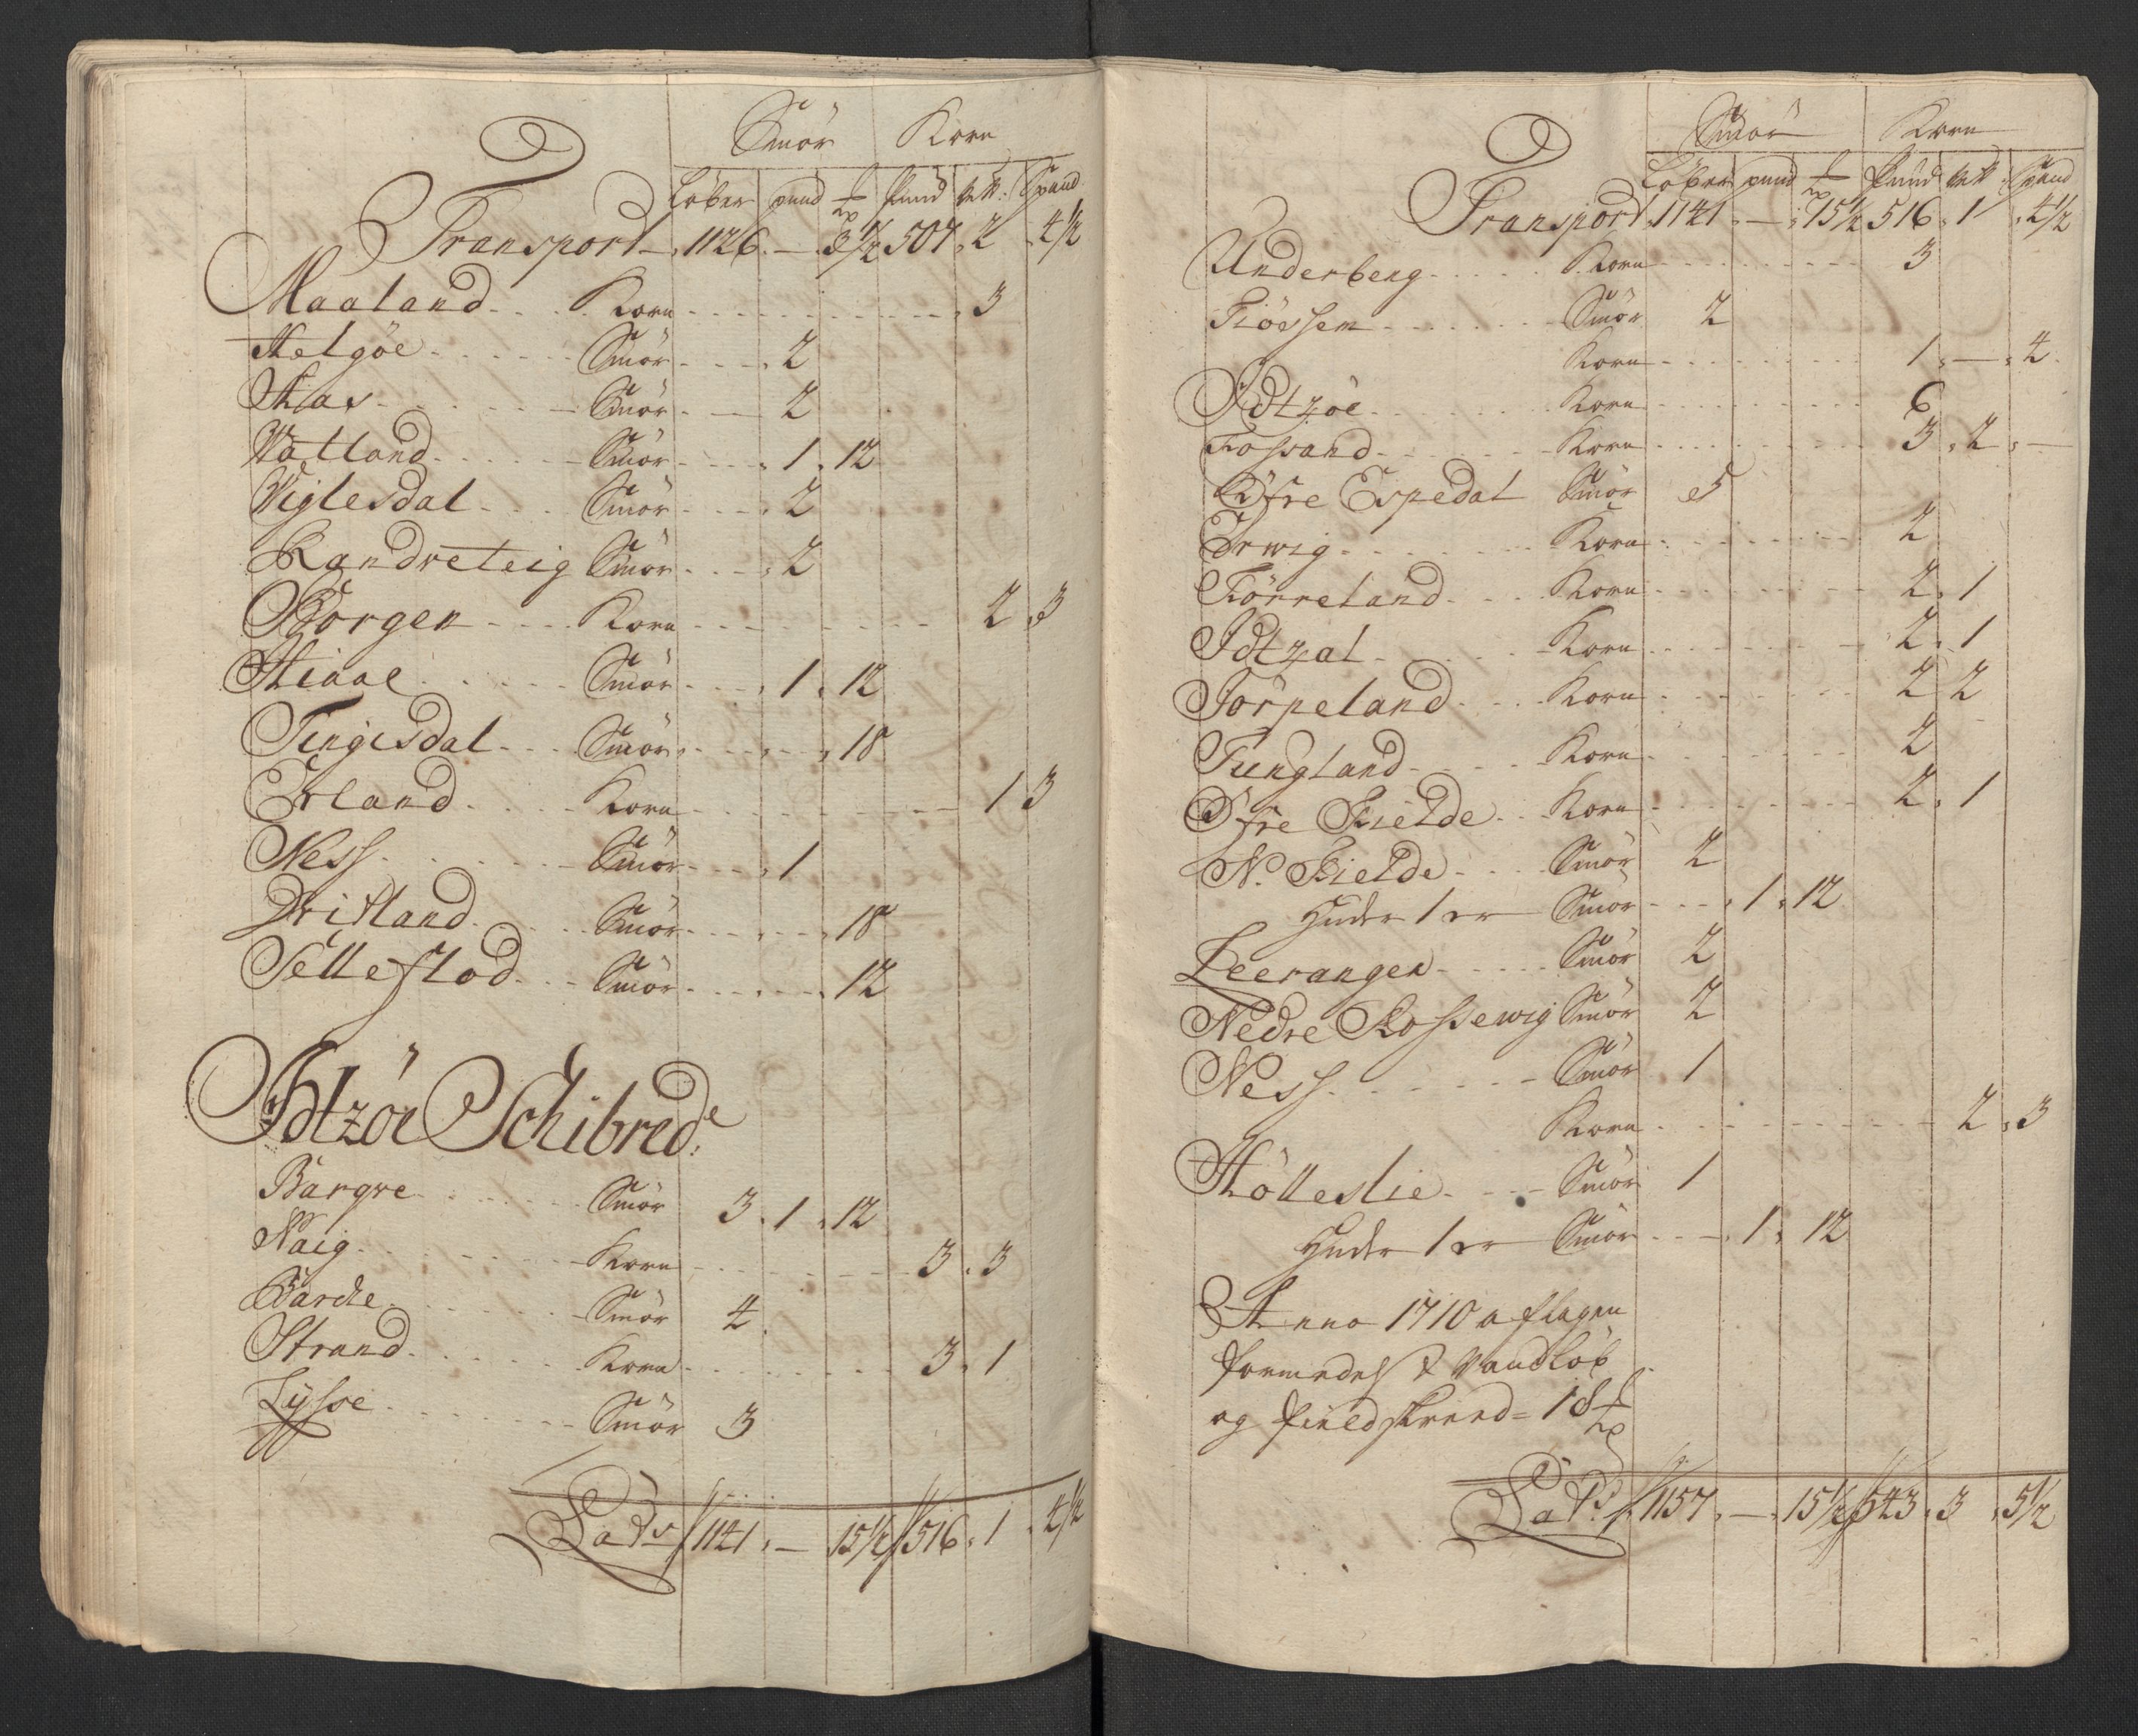 Smör Korn
Löber pund ℔ Pund Vett: Spand
Transport 1126. — 3½ 507. 2. 4½
Maaland Korn 3
Helgöe Smör 2
Aas Smör 2
Vatland Smör 1. 12
Viglesdal Smör 2
Randreteig Smör 2
Borgen Korn 2. 3
Hiaae Smör 1. 12
Tengisdal Smör 18
Erland Korn 1 3
Ness Smör 1
Dritland Smör 18
Tetlestod Smör 12
Idtzöe Schibred:e
Bargre Smör 3. 1. 12
Naig Korn 3. 3
Barche Smör 4
Strand Korn 3. 1
Lysse Smör 3
Lat:s 1141. — 15½ 516. 1. 4½
Smör Korn
Löber pund ℔ Pund Vett Spand
Transport 1141. — 15½ 516. 1. 4½
Underberg Korn 3
Fiössem Smör 2
Korn 1. — 4.
Idtzöe Korn 6
Fossand Korn 3. 2. —
Öfre Espedal Smör 5
Erwig Korn 2
Tiörreland Korn 2. 1
Idtzal Korn 2. 1
Jörpeland Korn 2 2
Tungland Korn 2
Öfre Kielde Korn 2. 1
N. Kielde Smör 2
Huder 1 er Smör 1. 12
Leerangen Smör 2
Nedre Rossewig Smör 2
Ness Smör 1
Korn 2. 3
Hölleslie Smör 1
Huder 1 er Smör 1. 12
Anno 1710 aflagen
formedelst Vandlöb
og Field skreed = 18 ℔
Lat:s 1157. — 15½ 543. 3. 5½